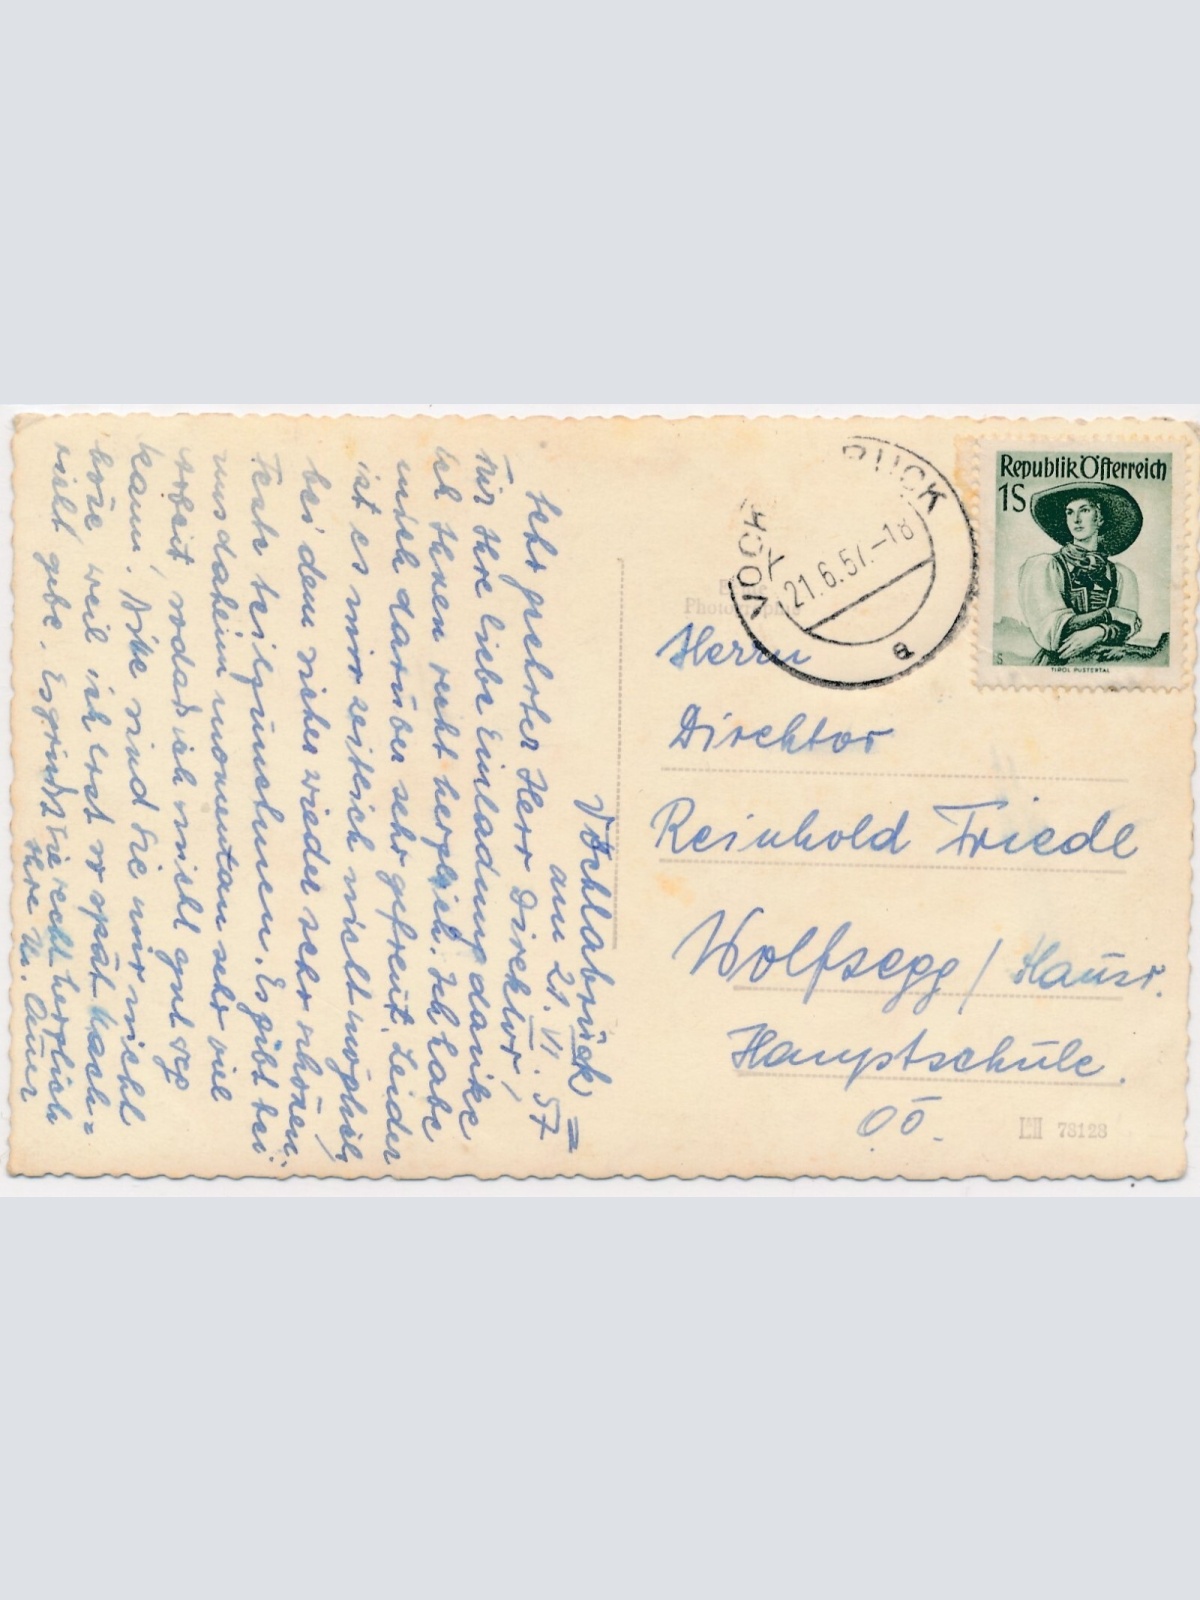 Vöcklabrück
am 21. VI. 57
Sehr geehrter Herr Direktor!
Für Ihre liebe Einladung danke
ich Ihnen recht herzlich. Ich habe
mich darüber sehr gefreut. Leider
ist es mir zeitlich nicht möglich,
bei dem sicher wieder sehr schönen
Feste beizuwohnen. Es gibt bei
uns daheim momentan sehr viel
Arbeit, sodaß ich nicht gut weg
kann. Bitte sind Sie mir nicht
böse, weil ich erst so spät Nach=
richt gebe. Es grüßt Sie recht herzlich
Ihre M. Auer
VÖCKLABRUCK
21.6.57.-18
a
Republik Österreich
1S
TIROL PUSTERTAL
Echte
Photographie
Herrn
Direktor
Reinhold Friedl
Wolfsegg / Hausr.
Hauptschule.
OÖ.
78128